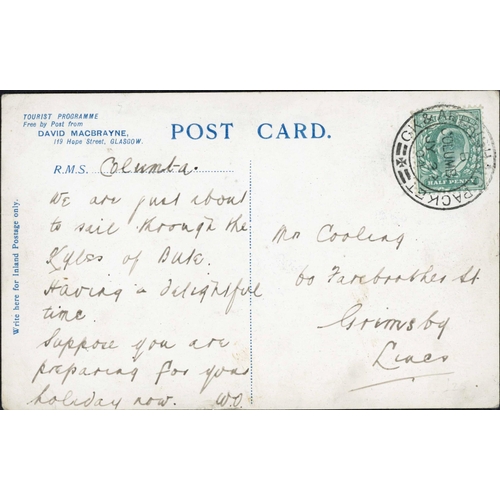 TOURIST PROGRAMME
Free by Post from
DAVID MACBRAYNE,
119 Hope Street, GLASGOW.
POST CARD.
R.M.S. Columba.
Write here for Inland Postage only.
We are just about
to sail through the
Kyles of Bute.
Having a delightful
time.
Suppose you are
preparing for your
holiday now. W.O.
Mr Cooling
60 Farebrother St
Grimsby
Lincs
HALF PENNY
PACKET